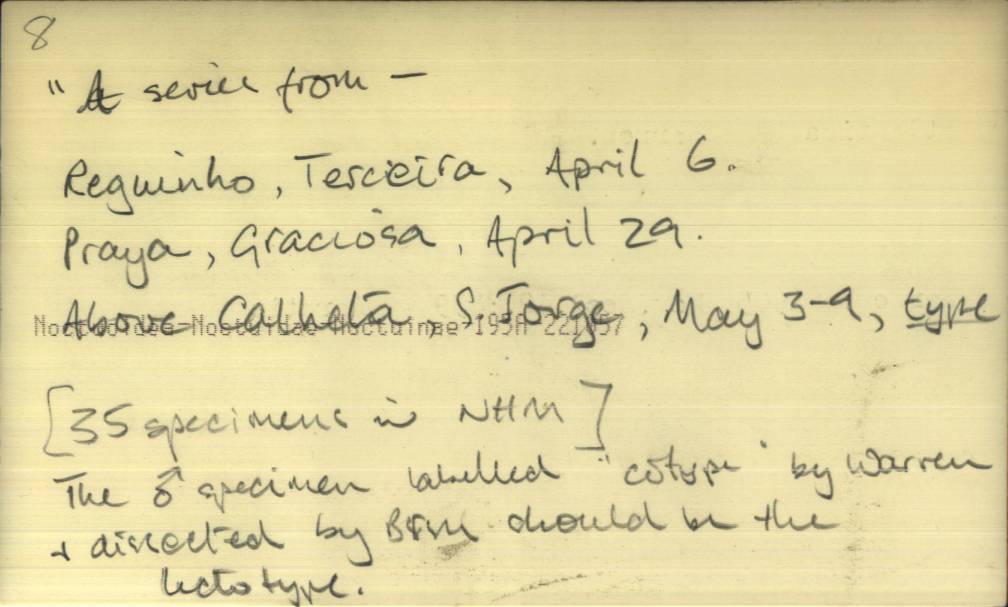 8
"A series from —
Reguinho, Terceira, April 6.
Praya, Graciosa, April 29.
Above Calheta, S. Jorge, May 3-9, type
Noctuoidea-Noctuidae-Noctuinae-195A 221057
[35 specimens in NHM]
The ♂ specimen labelled "cotype" by Warren
+ dissected by should be the
lectotype.